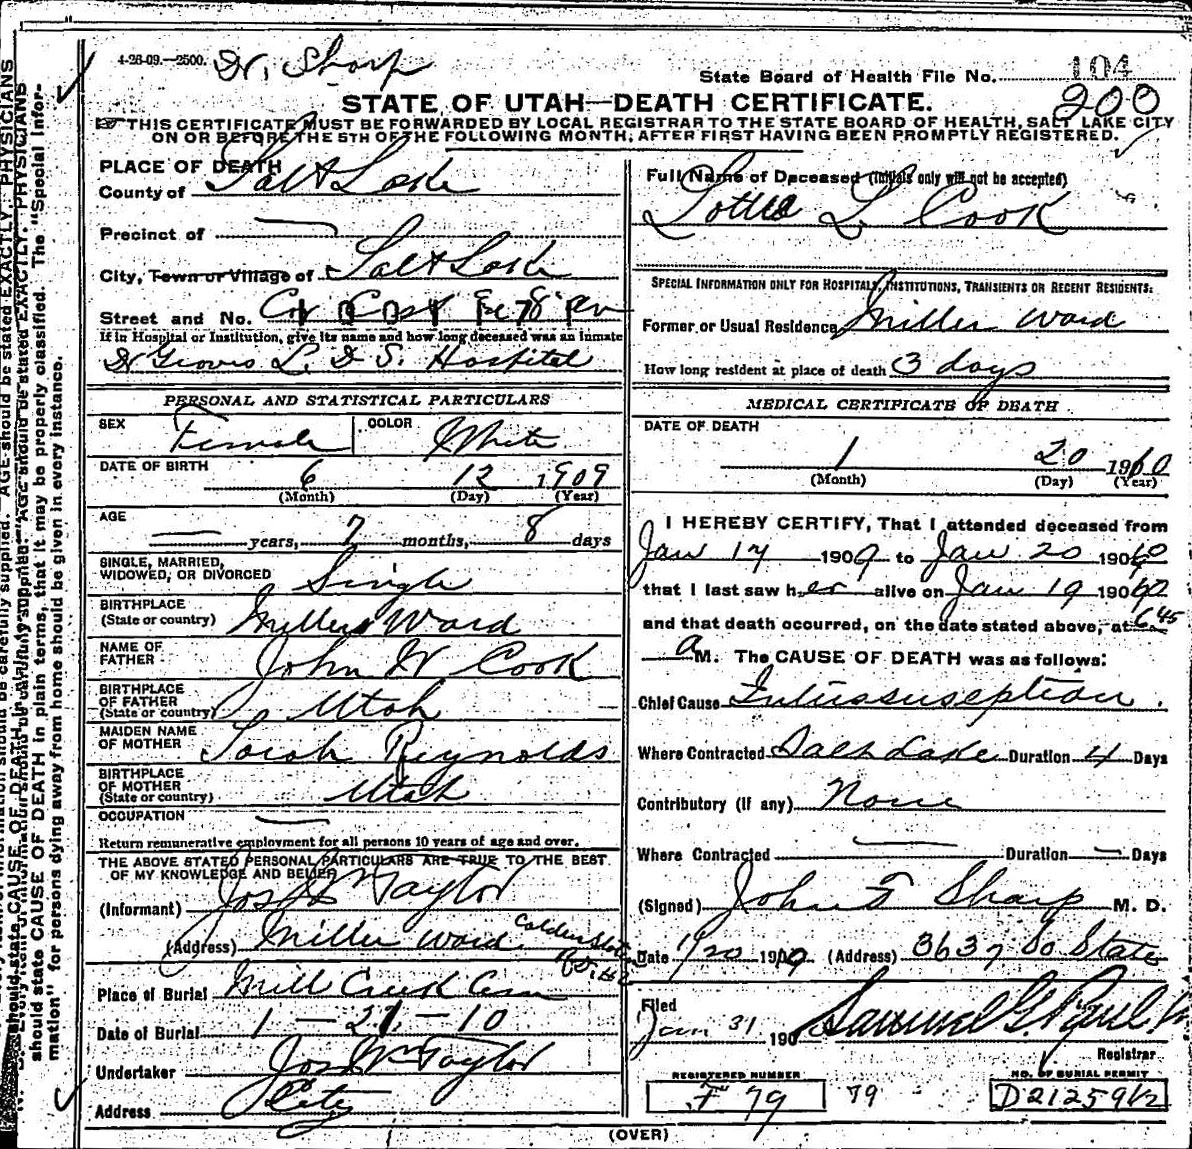 4-26-09.—2500. Dr. Sharp
State Board of Health File No. 104
200
STATE OF UTAH—DEATH CERTIFICATE.
THIS CERTIFICATE MUST BE FORWARDED BY LOCAL REGISTRAR TO THE STATE BOARD OF HEALTH, SALT LAKE CITY
ON OR BEFORE THE 5TH OF THE FOLLOWING MONTH, AFTER FIRST HAVING BEEN PROMPTLY REGISTERED.
PLACE OF DEATH
County of Salt Lake
Precinct of —
City, Town or Village of Salt Lake
Street and No.
If in Hospital or Institution, give its name and how long deceased was an inmate
Dr Groves L. D. S. Hospital
PERSONAL AND STATISTICAL PARTICULARS
SEX Female COLOR White
DATE OF BIRTH 6 12 1909
(Month) (Day) (Year)
AGE — years, 7 months, 8 days
SINGLE, MARRIED,
WIDOWED, OR DIVORCED Single
BIRTHPLACE
(State or country) Millers Ward
NAME OF
FATHER John W Cook
BIRTHPLACE
OF FATHER
(State or country) Utah
MAIDEN NAME
OF MOTHER Sarah Reynolds
BIRTHPLACE
OF MOTHER
(State or country) Utah
OCCUPATION —
Return remunerative employment for all persons 10 years of age and over.
THE ABOVE STATED PERSONAL PARTICULARS ARE TRUE TO THE BEST
OF MY KNOWLEDGE AND BELIEF
(Informant) Jos Wm Taylor
(Address) Miller Ward
Place of Burial Mill Creek Cem
Date of Burial 1 - 21 - 10
Undertaker Jos Wm Taylor
Address City
Full Name of Deceased (Initials only will not be accepted)
Lottie L. Cook
SPECIAL INFORMATION ONLY FOR HOSPITALS, INSTITUTIONS, TRANSIENTS OR RECENT RESIDENTS:
Former or Usual Residence Miller Ward
How long resident at place of death 3 days
MEDICAL CERTIFICATE OF DEATH
DATE OF DEATH
1 20 1910
(Month) (Day) (Year)
I HEREBY CERTIFY, That I attended deceased from
Jan 17 1909 to Jan 20 1910
that I last saw her alive on Jan 19 1910
and that death occurred, on the date stated above, at 6 45
a M. The CAUSE OF DEATH was as follows:
Chief Cause Intussuseption.
Where Contracted Salt Lake Duration 4 Days
Contributory (if any) None
Where Contracted — Duration — Days
(Signed) John F Sharp M. D.
Date 1/20 1910 (Address) 3637 So State
Filed
Jan 31 190 Samuel G. Paul
Registrar
REGISTERED NUMBER
F 79 79
NO. OF BURIAL PERMIT
D21259½
(OVER)
should state CAUSE OF DEATH in plain terms, that it may be properly classified. The "Special Infor-
mation" for persons dying away from home should be given in every instance.